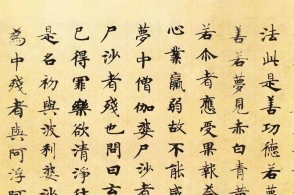 法此是善功德若夢
善若夢見赤白青黃
若尒者應受果報答
心業羸弱故不能感
夢中僧伽婆尸沙者
尸沙者殘也問曰
已得罪樂欲清淨往
是名初與波利婆沙
為中殘者與阿浮呵